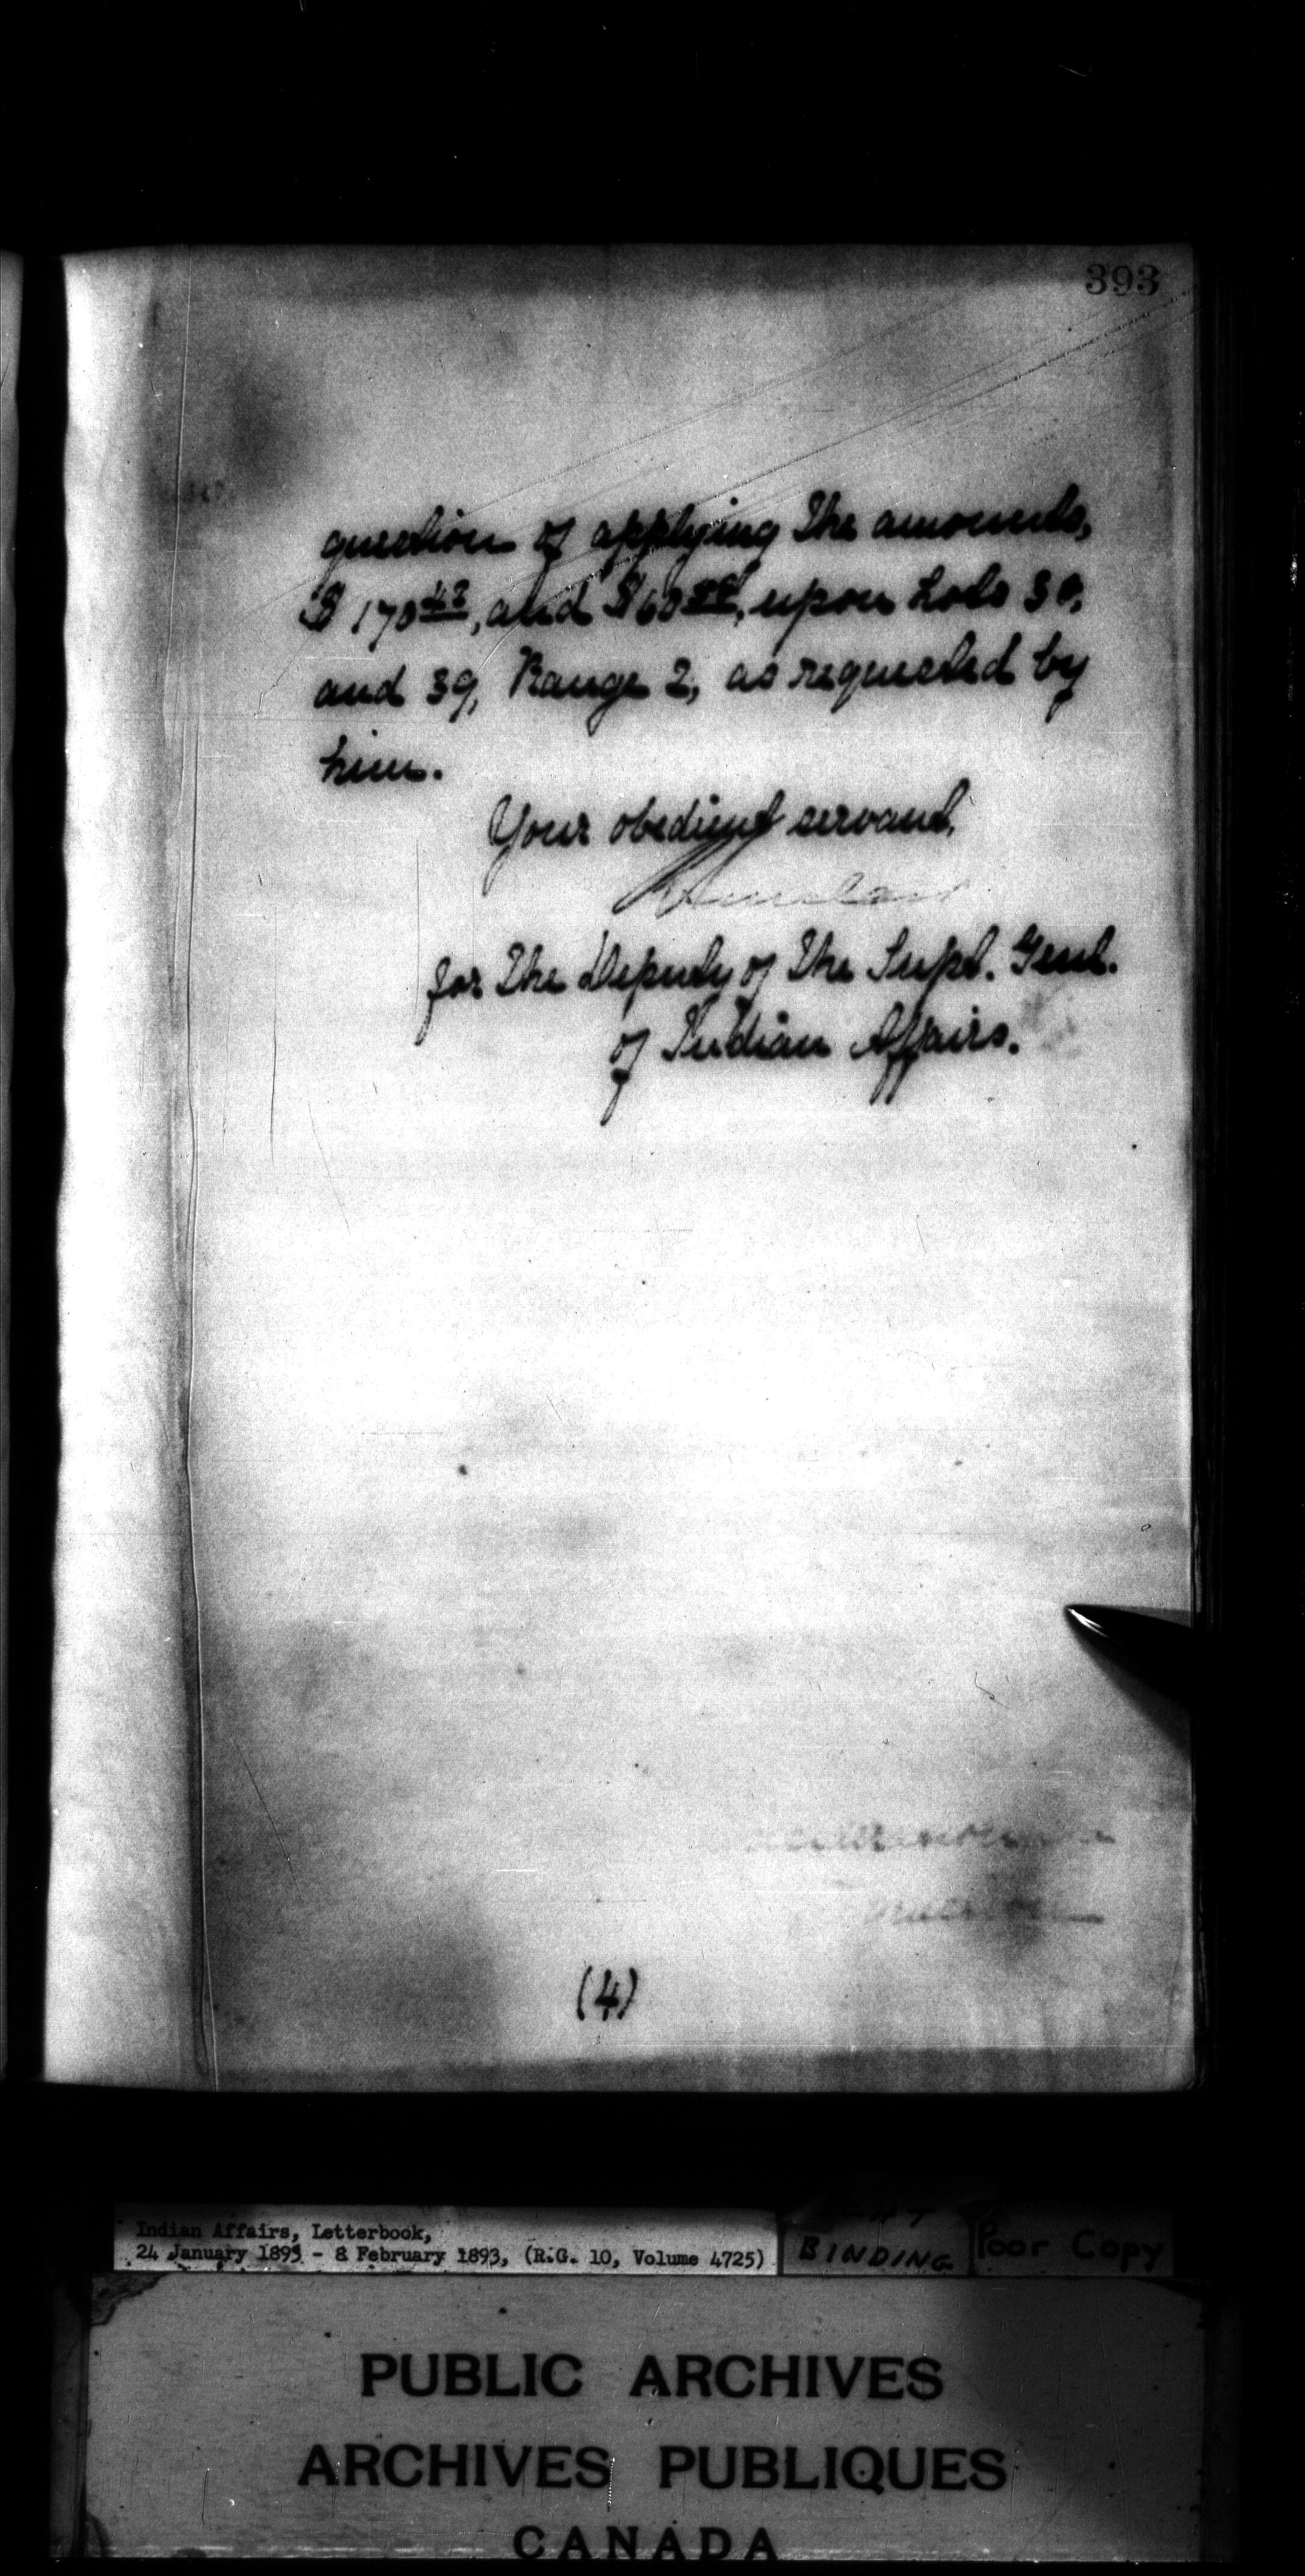 393
question of applying the amounts,
$170 and upon Lots
and 39, Range 2, as requested by
him.
Your obedient servant,
for the Deputy of the Supt. Genl.
of Indian Affairs.
(4)
Indian Affairs, Letterbook,
24 January 1893 - 8 February 1893, (R.G. 10, Volume 4725)
BINDING
Poor Copy
PUBLIC ARCHIVES
ARCHIVES PUBLIQUES
CANADA